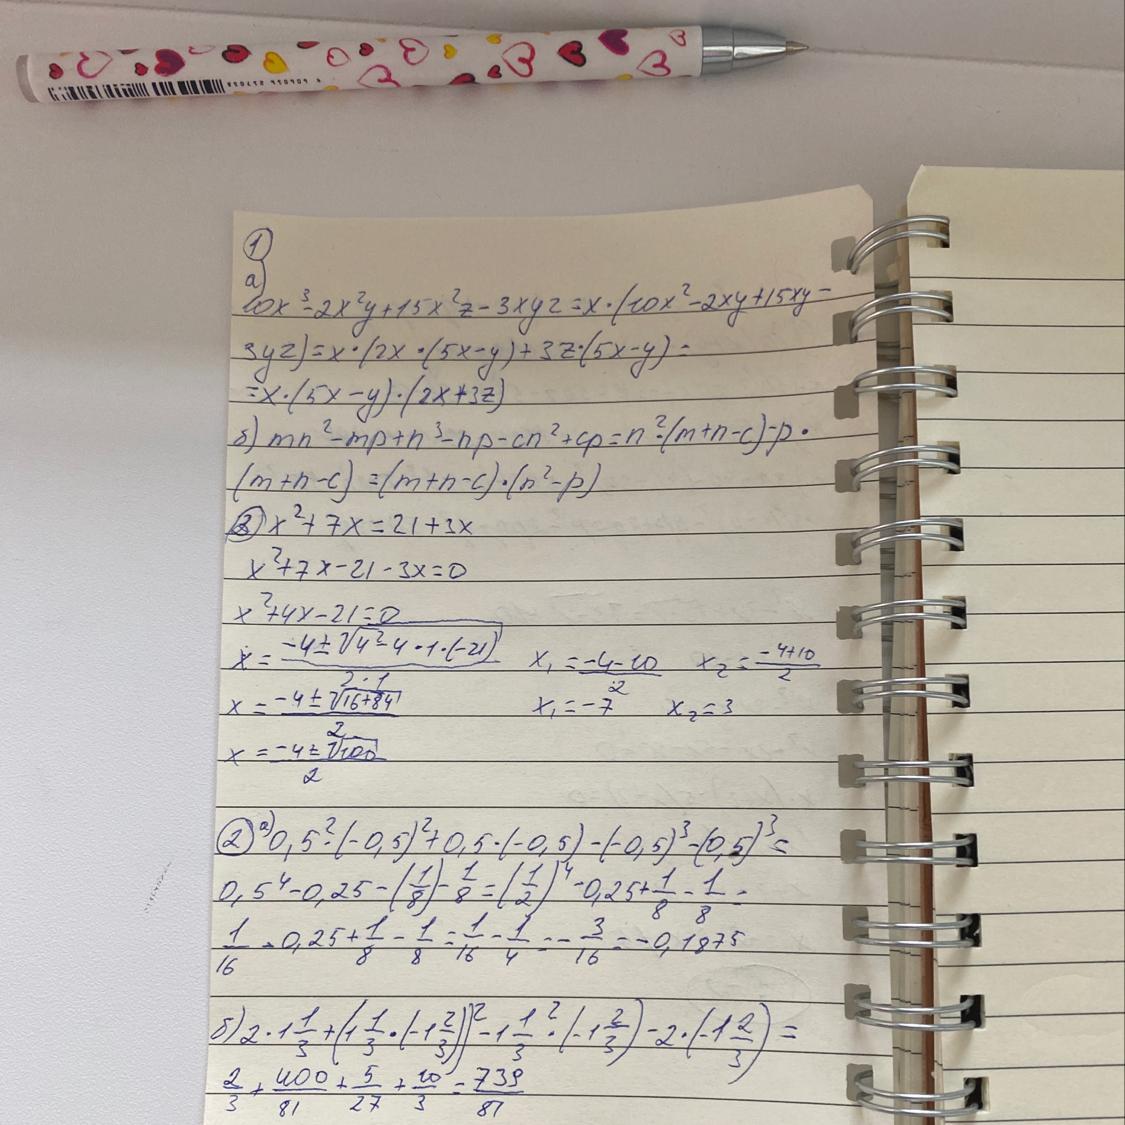 1
а)
10x³-2x²y+15x²z-3xyz=x·(10x²-2xy+15xy-
3yz)=x·(2x·(5x-y)+3z·(5x-y)=
=x·(5x-y)·(2x+3z)
б) mn²-mp+n³-np-cn²+cp=n²·(m+n-c)-p·
(m+n-c)=(m+n-c)·(n²-p)
3) x²+7x=21+3x
x²+7x-21-3x=0
x²+4x-21=0
x=(-4±√(4²-4·1·(-21)))/(2·1) x₁=(-4-10)/2 x₂=(-4+10)/2
x=(-4±√(16+84))/2 x₁=-7 x₂=3
x=(-4±√100)/2
2 а) 0,5²·(-0,5)²+0,5·(-0,5)-(-0,5)³-(0,5)³=
0,5⁴-0,25-(1/8)-1/8=(1/2)⁴-0,25+1/8-1/8=
1/16-0,25+1/8-1/8=1/16-1/4=-3/16=-0,1875
б) 2·1 1/3+(1 1/3·(-1 2/3))²-1 1/3²·(-1 2/3)-2·(-1 2/3)=
2/3+400/81+5/27+10/3=739/81